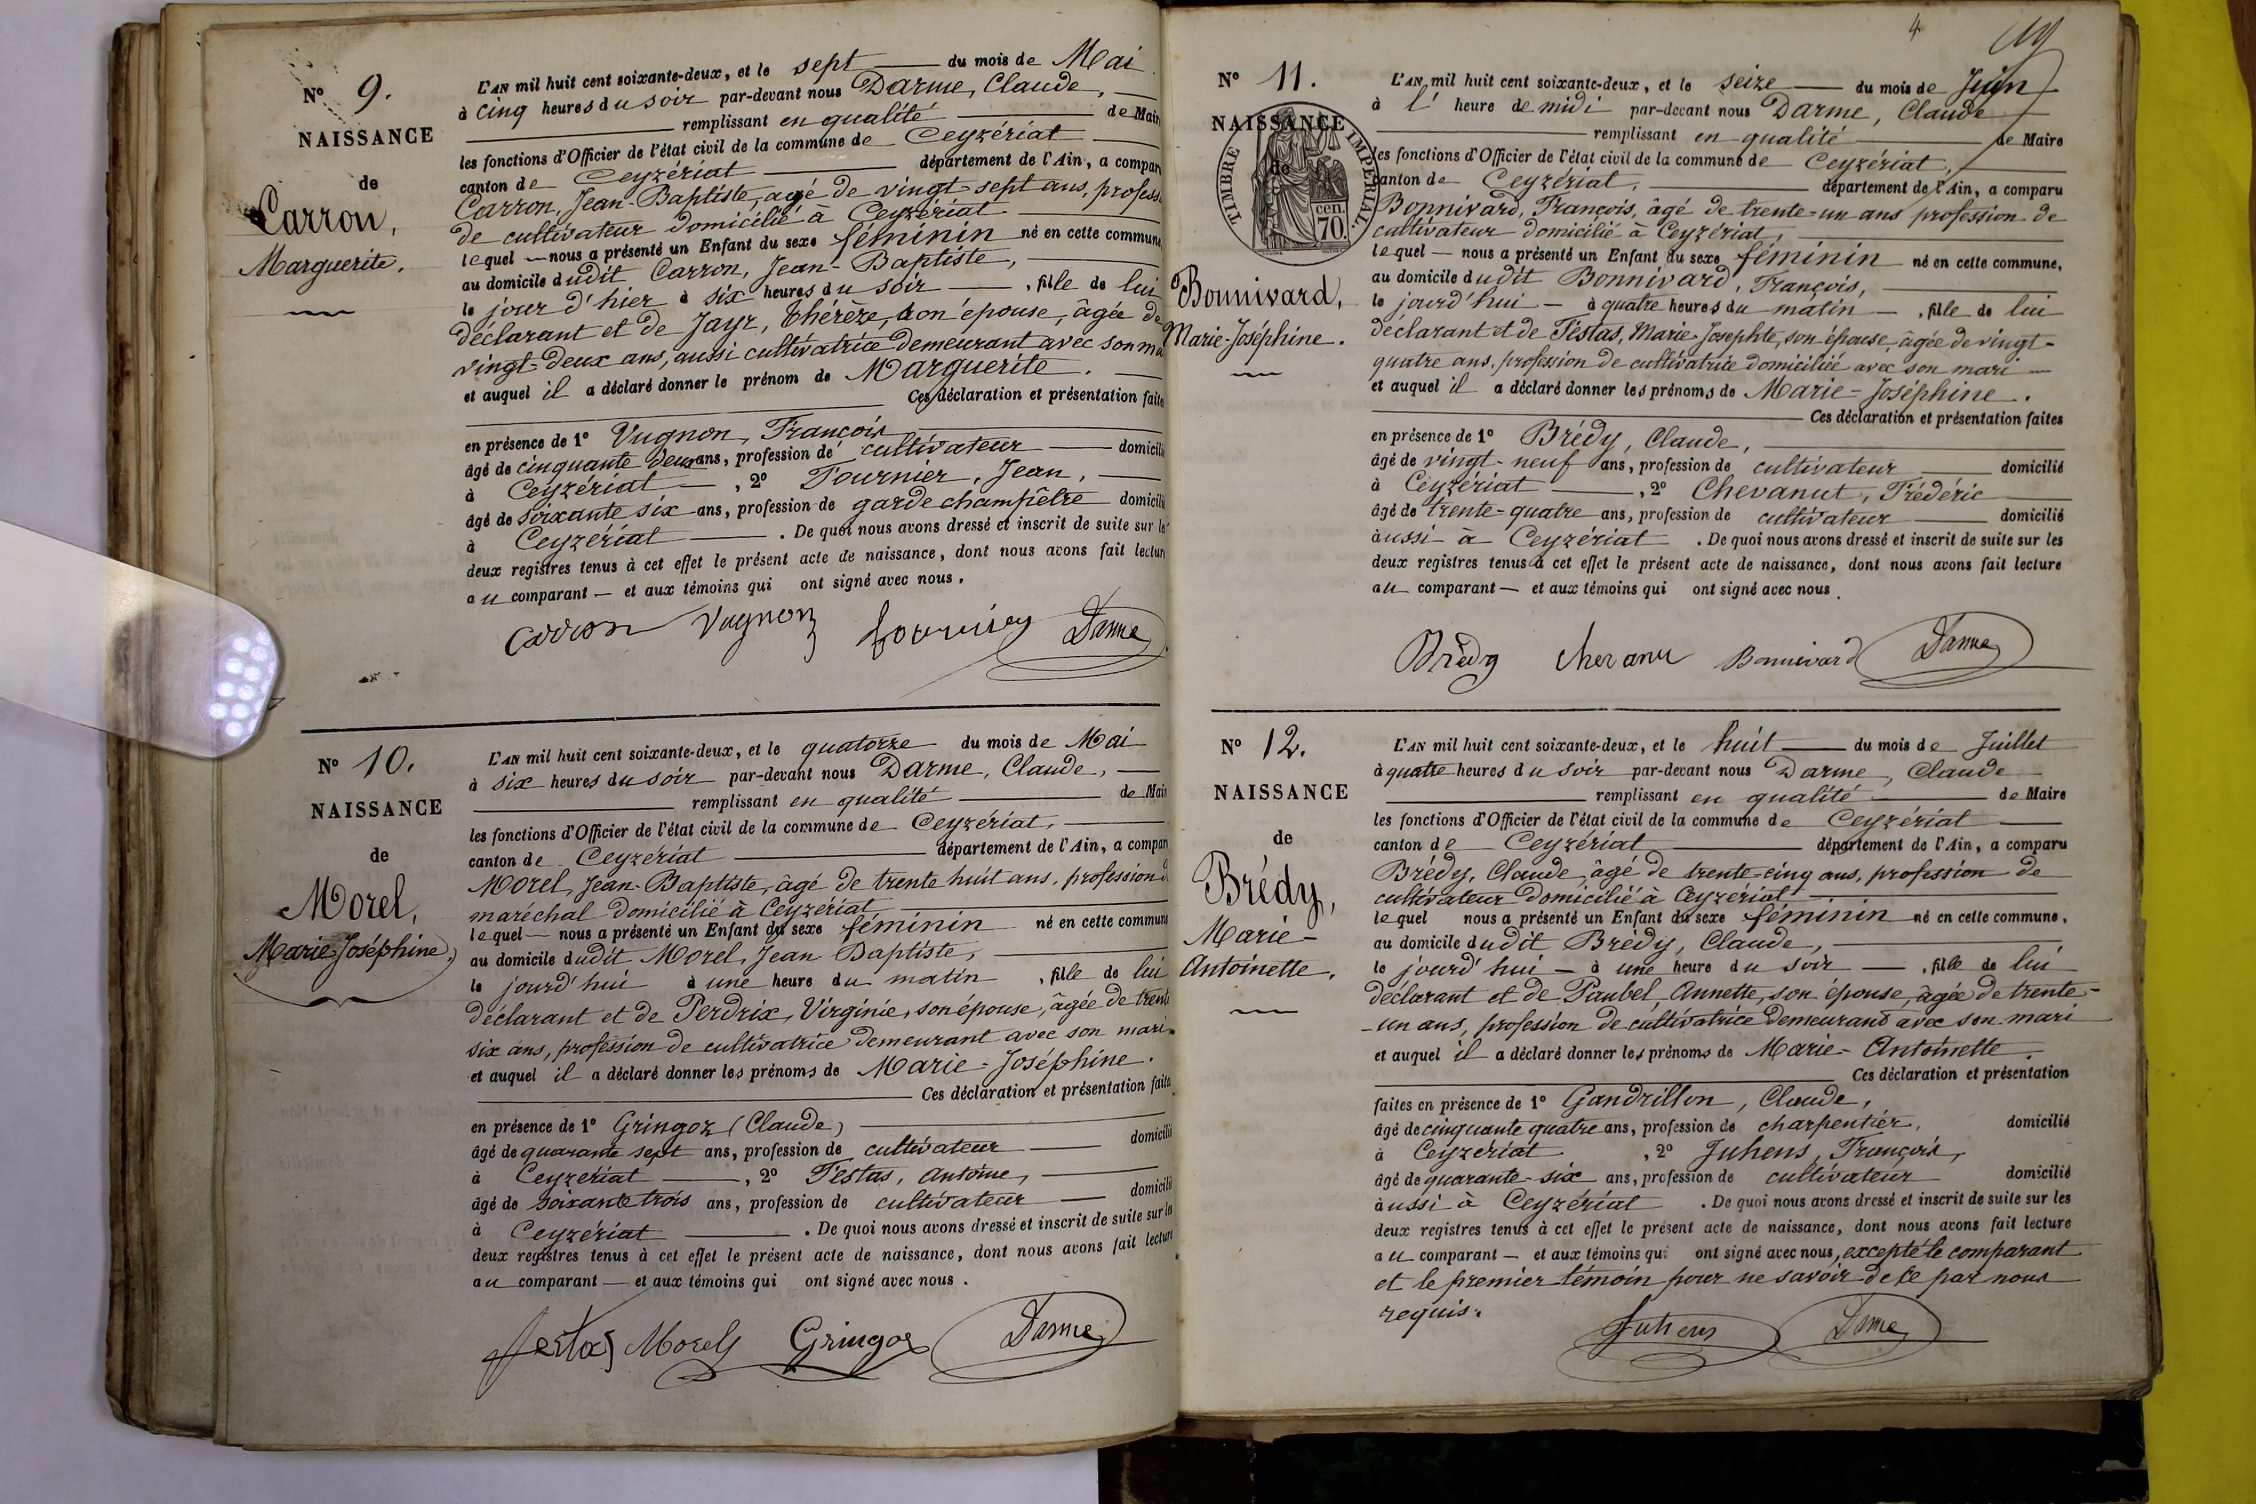 N° 9.
NAISSANCE
de
Carron,
Marguerite.
L'AN mil huit cent soixante-deux, et le sept du mois de Mai
à cinq heures du soir par-devant nous Darme, Claude,
remplissant en qualité de Mair
les fonctions d'Officier de l'état civil de la commune de Ceyzériat
canton de Ceyzériat département de l'Ain, a compar
Carron, Jean-Baptiste, agé de vingt-sept ans, profess
de cultivateur domicilié à Ceyzériat
lequel nous a présenté un Enfant du sexe féminin né en cette commune
au domicile dudit Carron, Jean-Baptiste,
le jour d'hier à six heures du soir , fille de lui
déclarant et de Jayr, Thérèze, son épouse, âgée de
vingt-deux ans, aussi cultivatrice demeurant avec son ma
et auquel il a déclaré donner le prénom de Marguerite.
Ces déclaration et présentation faite
en présence de 1° Vugnon, François
âgé de cinquante deux ans, profession de cultivateur domicilié
à Ceyzériat , 2° Fournier, Jean,
âgé de soixante six ans, profession de garde champêtre domicilié
à Ceyzériat . De quoi nous avons dressé et inscrit de suite sur le
deux registres tenus à cet effet le présent acte de naissance, dont nous avons fait lecture
au comparant — et aux témoins qui ont signé avec nous.
Carron Vugnon fournier Darme
N° 10.
NAISSANCE
de
Morel,
Marie-Joséphine,
L'AN mil huit cent soixante-deux, et le quatorze du mois de Mai
à six heures du soir par-devant nous Darme, Claude,
remplissant en qualité de Mair
les fonctions d'Officier de l'état civil de la commune de Ceyzériat,
canton de Ceyzériat département de l'Ain, a compar
Morel, Jean-Baptiste, âgé de trente huit ans, profession d
maréchal domicilié à Ceyzériat
lequel — nous a présenté un Enfant du sexe féminin né en cette commune
au domicile dudit Morel, Jean Baptiste,
le jourd'hui à une heure du matin , fille de lui
déclarant et de Perdrix, Virginie, son épouse, âgée de trente
six ans, profession de cultivatrice demeurant avec son mari
et auquel il a déclaré donner les prénoms de Marie-Joséphine.
Ces déclaration et présentation faite
en présence de 1° Gringoz (Claude)
âgé de quarante sept ans, profession de cultivateur domicilié
à Ceyzériat , 2° Festas, Antoine,
âgé de soixante trois ans, profession de cultivateur domicilié
à Ceyzériat . De quoi nous avons dressé et inscrit de suite sur les
deux registres tenus à cet effet le présent acte de naissance, dont nous avons fait lecture
au comparant — et aux témoins qui ont signé avec nous.
festas Morel Gringoz Darme
4
N° 11.
NAISSANCE
de
TIMBRE IMPERIAL.
cen. 70
Bonnivard,
Marie-Joséphine.
L'AN mil huit cent soixante-deux, et le seize du mois de Juin
à l' heure de midi par-devant nous Darme, Claude
remplissant en qualité de Maire
les fonctions d'Officier de l'état civil de la commune de Ceyzériat,
canton de Ceyzériat, département de l'Ain, a comparu
Bonnivard, François, âgé de trente-un ans profession de
cultivateur domicilié à Ceyzériat,
lequel — nous a présenté un Enfant du sexe féminin né en cette commune,
au domicile dudit Bonnivard, François,
le jourd'hui — à quatre heures du matin — , fille de lui
déclarant et de Festas, Marie Josephte, son épouse, âgée de vingt-
quatre ans, profession de cultivatrice domiciliée avec son mari
et auquel il a déclaré donner les prénoms de Marie-Joséphine.
Ces déclaration et présentation faites
en présence de 1° Brédy, Claude,
âgé de vingt-neuf ans, profession de cultivateur domicilié
à Ceyzériat , 2° Chevanut, Frédéric
âgé de trente-quatre ans, profession de cultivateur domicilié
aussi à Ceyzériat . De quoi nous avons dressé et inscrit de suite sur les
deux registres tenus à cet effet le présent acte de naissance, dont nous avons fait lecture
au comparant — et aux témoins qui ont signé avec nous.
Brédy Bonnivard Darme
N° 12.
NAISSANCE
de
Brédy,
Marie-
Antoinette.
L'AN mil huit cent soixante-deux, et le huit du mois de Juillet
à quatre heures du soir par-devant nous Darme, Claude
remplissant en qualité de Maire
les fonctions d'Officier de l'état civil de la commune de Ceyzériat
canton de Ceyzériat département de l'Ain, a comparu
Brédy, Claude, âgé de trente-cinq ans, profession de
cultivateur domicilié à Ceyzériat
lequel nous a présenté un Enfant du sexe féminin né en cette commune,
au domicile dudit Brédy, Claude,
le jourd'hui — à une heure du soir — , fille de lui
déclarant et de Paubel, Annette, son épouse, âgée de trente-
-un ans, profession de cultivatrice demeurant avec son mari
et auquel il a déclaré donner les prénoms de Marie-Antoinette.
Ces déclaration et présentation
faites en présence de 1° Gandrillon, Claude,
âgé de cinquante quatre ans, profession de charpentier, domicilié
à Ceyzériat , 2° Juhens, François,
âgé de quarante-six ans, profession de cultivateur domicilié
aussi à Ceyzériat . De quoi nous avons dressé et inscrit de suite sur les
deux registres tenus à cet effet le présent acte de naissance, dont nous avons fait lecture
au comparant — et aux témoins qui ont signé avec nous, excepté le comparant
et le premier témoin pour ne savoir de ce par nous
requis.
Juhens Darme